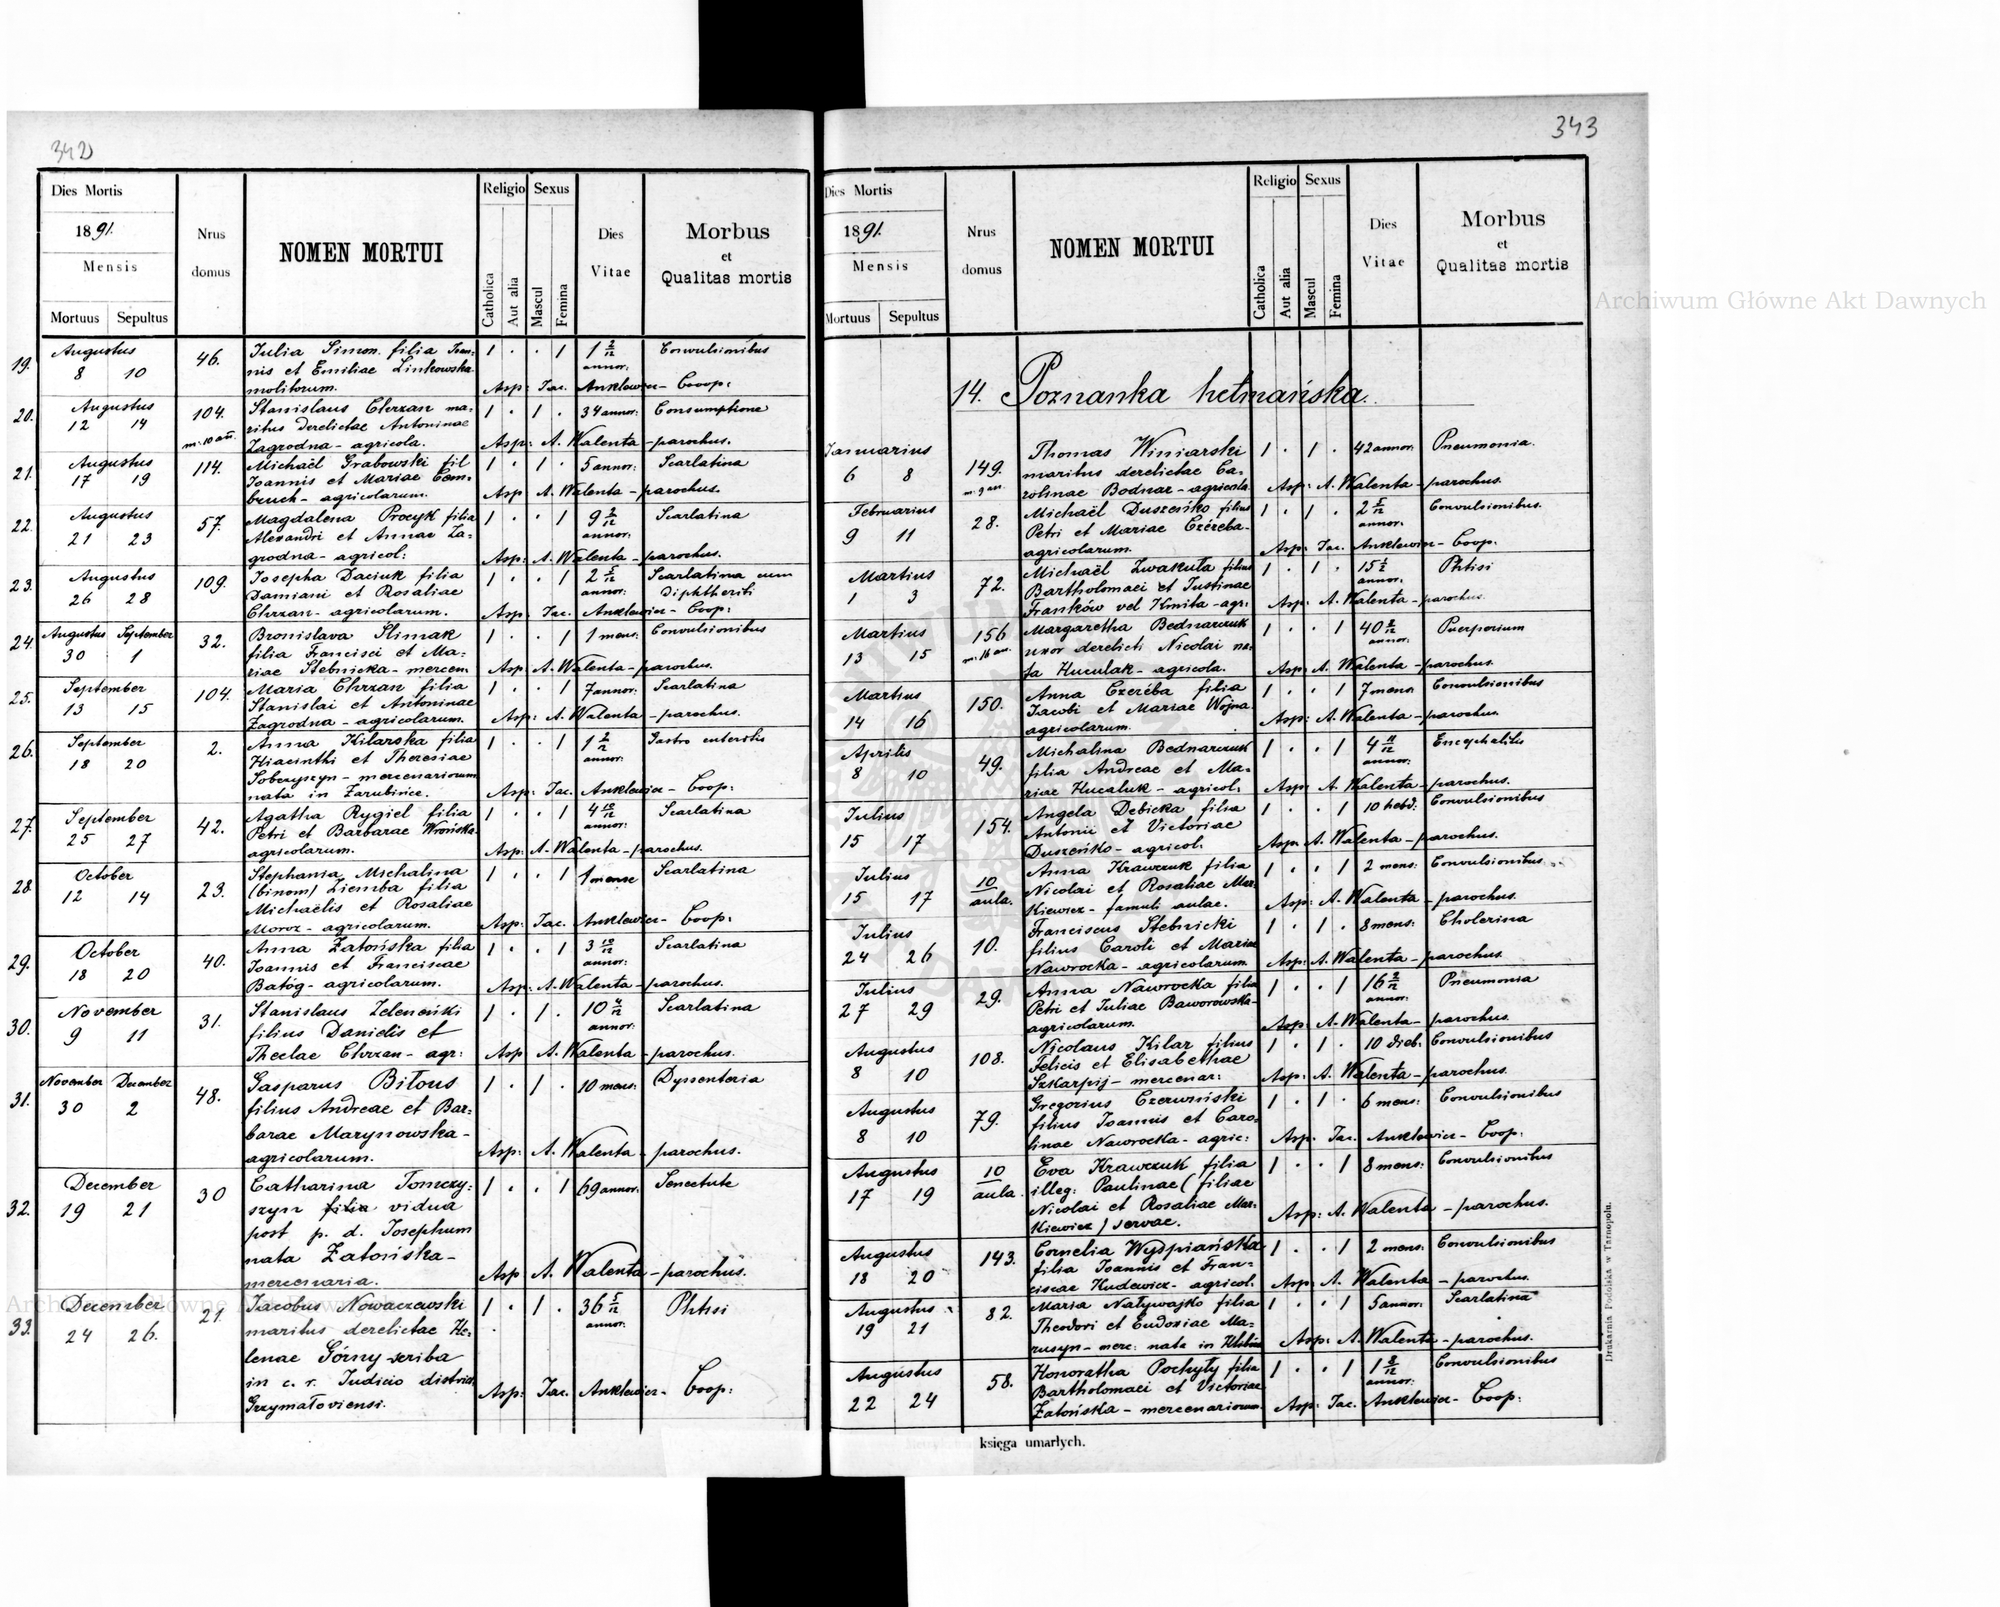 342
Dies Mortis
1891.
Mensis
Mortuus Sepultus
Nrus domus
NOMEN MORTUI
Religio Sexus
Catholica Aut alia Mascul Femina
Dies Vitae
Morbus
et
Qualitas mortis
19. Augustus 8 10 46. Julia Simon filia Joan- 1 . . 1 1 2/12 annor: Convulsionibus
nis et Emiliae Linkowska
molitorum. Asp: Jac. Anklewicz - Cooop:
20. Augustus 12 14 104. Stanislaus Chrzan ma- 1 . 1 . 34 annor: Consumptione
ritus derelictae Antoninae
Zagrodna - agricola. Asp: A. Walenta - parochus.
21. Augustus 17 19 114. Michaël Grabowski fil 1 . 1 . 5 annor: Scarlatina
Joannis et Mariae
- agricolarum. Asp A. Walenta - parochus.
22. Augustus 21 23 57. Magdalena Procyk filia 1 . . 1 annor: Scarlatina
Alexandri et Annae Za-
grodna - agricol: Asp: A. Walenta - parochus.
23. Augustus 26 28 109. Josepha Daciuk filia 1 . . 1 annor: Scarlatina cum
Damiani et Rosaliae Diphtheriti
Chrzan - agricolarum. Asp: Jac. Anklewicz - Coop:
24. Augustus 30 September 1 32. Bronislava Slimak 1 . . 1 1 mens: Convulsionibus
filia Francisci et Ma-
riae Stebnicka - mercen Asp: A. Walenta - parochus.
25. September 13 15 104. Maria Chrzan filia 1 . . 1 7 annor: Scarlatina
Stanislai et Antoninae
Zagrodna - agricolarum. Asp: A. Walenta - parochus.
26. September 18 20 2. Anna Kilarska filia 1 . . 1 annor: Gastro enteritis
Hiacinthi et Theresiae
Sobczyszyn - mercenariorum
nata in Zarubińce. Asp: Jac. Anklewicz - Coop:
27. September 25 27 42. Agatha Rygiel filia 1 . . 1 4 10/12 annor: Scarlatina
Petri et Barbarae Wrońska
agricolarum. Asp: A. Walenta - parochus.
28. October 12 14 23. Stephania Michalina 1 . . 1 1 mense Scarlatina
(binom) Ziemba filia
Michaëlis et Rosaliae
Moroz - agricolarum. Asp: Jac. Anklewicz - Coop:
29. October 18 20 40. Anna Zatońska filia 1 . . 1 3 10/12 annor: Scarlatina
Joannis et Franciscae
Batóg - agricolarum. Asp: A. Walenta - parochus.
30. November 9 11 31. Stanislaus Zeleneński 1 . 1 . 10 4/12 annor: Scarlatina
filius Danielis et
Theclae Chrzan - agr: Asp A. Walenta - parochus.
31. November 30 December 2 48. Gasparus Biłous 1 . 1 . 10 mens: Dyssenteria
filius Andreae et Bar-
barae Marynowska -
agricolarum. Asp: A. Walenta - parochus.
32. December 19 21 30 Catharina Tomczy- 1 . . 1 69 annor: Senectute
szyn filia vidua
post p. d. Josephum
nata Zatońska -
mercenaria. Asp A. Walenta - parochus.
33. December 24 26. 21. Jacobus Nowaczewski 1 . 1 . 36 5/12 annor: Phtisi
maritus derelictae He-
lenae Górny - scriba
in c. r. Judicio district.
Grzymałoviensi. Asp: Jac. Anklewicz - Coop:
343
Dies Mortis
1891.
Mensis
Mortuus Sepultus
Nrus domus
NOMEN MORTUI
Religio Sexus
Catholica Aut alia Mascul Femina
Dies Vitae
Morbus
et
Qualitas mortis
14. Poznanka hetmańska.
Januarius 6 8 149. Thomas Winiarski 1 . 1 . 42 annor: Pneumonia.
maritus derelictae Ca-
rolinae Bodnar - agricola Asp: A. Walenta - parochus.
Februarius 9 11 28. Michaël Duszeńko filius 1 . 1 . 2 5/12 annor. Convulsionibus.
Petri et Mariae Czéréba -
agricolarum. Asp: Jac. Anklewicz - Coop.
Martius 1 3 72. Michaël Zwakuła filius 1 . 1 . annor: Phtisi
Bartholomaei et Justinae
Franków vel Kmita - agr: Asp: A. Walenta - parochus.
Martius 13 15 156 Margaretha Bednarczuk 1 . . 1 annor: Puerperium
uxor derelicti Nicolai na-
ta Huculak - agricola. Asp: A. Walenta - parochus.
Martius 14 16 150. Anna Czeréba filia 1 . . 1 7 mens Convulsionibus
Jacobi et Mariae Wojna
agricolarum. Asp: A. Walenta - parochus.
Aprilis 8 10 49. Michalina Bednarczuk 1 . . 1 4 11/12 annor: Encephalitis
filia Andreae et Ma-
riae Hucaluk - agricol. Asp: A. Walenta - parochus.
Julius 15 17 154. Angela Debicka filia 1 . . 1 10 hebd: Convulsionibus
Antonii et Victoriae
Duszeńko - agricol. Asp: A. Walenta - parochus.
Julius 15 17 10 aula. Anna Krawczuk filia 1 . . 1 2 mens: Convulsionibus
Nicolai et Rosaliae Mar-
kiewicz - famuli aulae. Asp: A. Walenta - parochus.
Julius 24 26 10. Franciscus Stebnicki 1 . 1 . 8 mens: Cholerina
filius Caroli et Mariae
Nawrocka - agricolarum Asp: A. Walenta - parochus.
Julius 27 29 29. Anna Nawrocka filia 1 . . 1 annor: Pneumonia
Petri et Juliae Baworowska -
agricolarum. Asp: A. Walenta - parochus.
Augustus 8 10 108. Nicolaus Kilar filius 1 . 1 . 10 dieb: Convulsionibus
Felicis et Elisabethae
Szkarpij - mercenar: Asp: A. Walenta - parochus.
Augustus 8 10 79. Gregorius Czerwiński 1 . 1 . 6 mens: Convulsionibus
filius Joannis et Caro-
linae Nawrocka - agric: Asp: Jac. Anklewicz - Coop:
Augustus 17 19 10 aula. Eva Krawczuk filia 1 . . 1 8 mens: Convulsionibus
illeg: Paulinae (filiae
Nicolai et Rosaliae Mar-
kiewicz) servae. Asp: A. Walenta - parochus.
Augustus 18 20 143. Cornelia Wyspiańska 1 . . 1 2 mens: Convulsionibus
filia Joannis et Fran-
ciscae Hudewicz - agricol. Asp: A. Walenta - parochus.
Augustus 19 21 82. Maria Natywajko filia 1 . . 1 5 annor: Scarlatina
Theodori et Eudoxiae Ma-
rusyn - merc: nata in Asp: A. Walenta - parochus.
Augustus 22 24 58. Honoratha Pochyły filia 1 . . 1 annor: Convulsionibus
Bartholomaei et Victoriae
Zatońska - mercenariorum. Asp: Jac. Anklewicz - Coop:
księga umarłych.
Drukarnia Podolska w Tarnopolu.
Archiwum Główne Akt Dawnych
Archiwum Główne Akt Dawnych